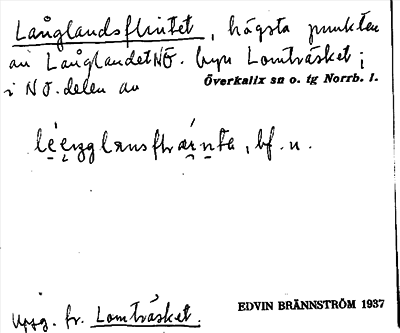 Långlandsflintet, högsta punkten
av Långlandet NÖ. byn Lomträsket i
i NÖ.delen av Överkalix sn o. tg Norrb. l.
bf. n.
Uppg. fr. Lomträsket.
EDVIN BRÄNNSTRÖM 1937